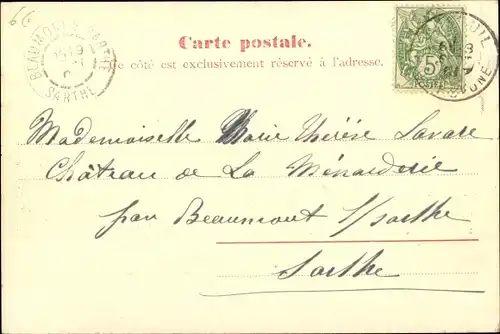 66
BEAUMONT-S-SARTHE
15 19
SARTHE
Carte postale.
Ce côté est exclusivement réservé à l'adresse.
5
POSTES
Mademoiselle Marie Thérèse Lavare
Château de La Ménarderie
par Beaumont s/sarthe
Sarthe